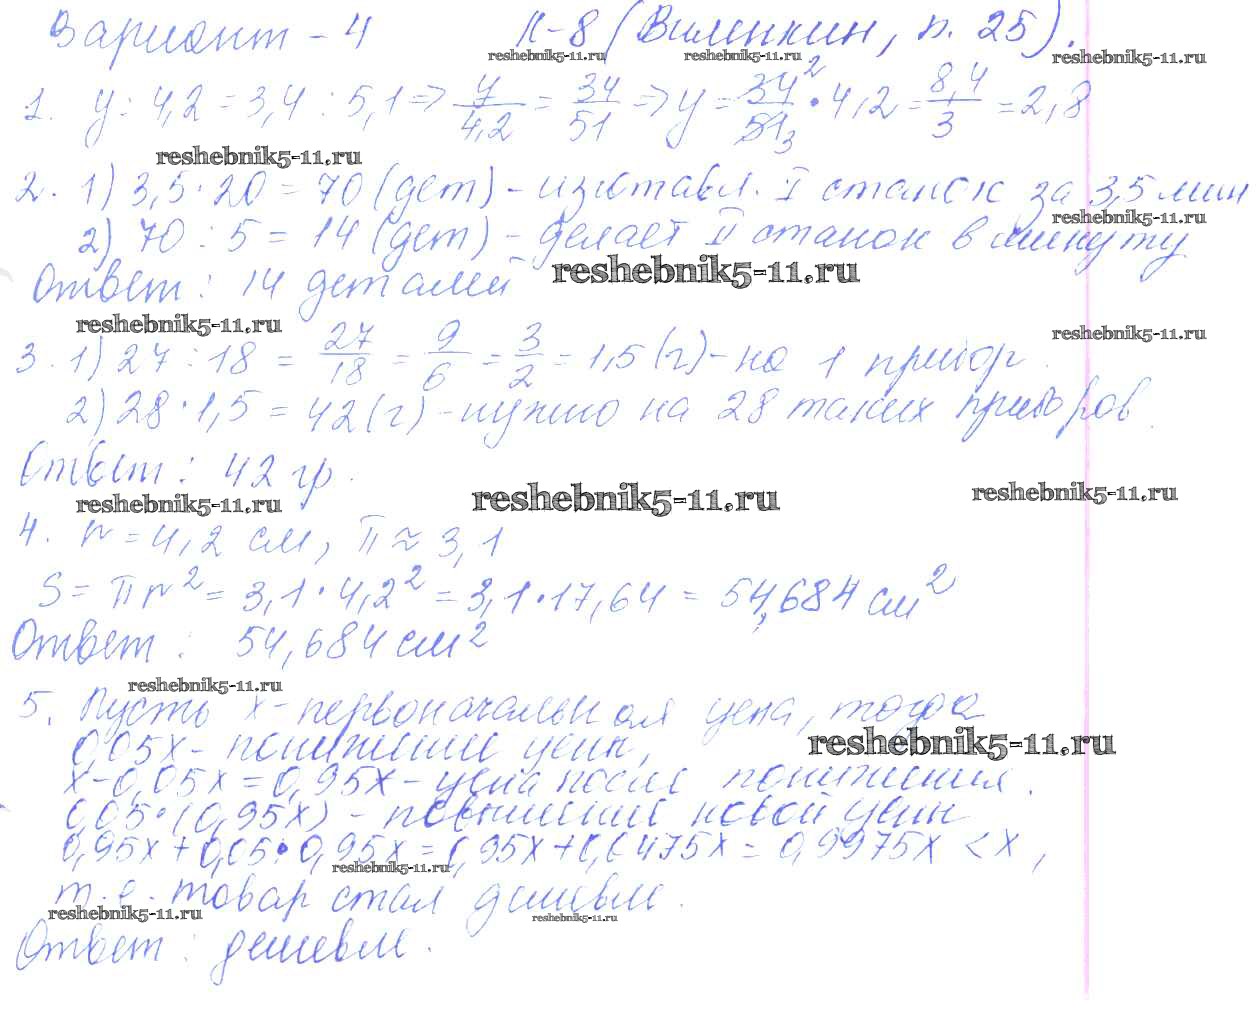 Вариант - 4 К-8 (Виленкин, п. 25).
reshebnik5-11.ru reshebnik5-11.ru reshebnik5-11.ru
1. y : 4,2 = 3,4 : 5,1 => y/4,2 = 34/51 => y = 34²/51₃ · 4,2 = 8,4/3 = 2,8
reshebnik5-11.ru
2. 1) 3,5 · 20 = 70 (дет) - изготавл. I станок за 3,5 мин
reshebnik5-11.ru
2) 70 : 5 = 14 (дет) - делает II станок в минуту
Ответ: 14 деталей
reshebnik5-11.ru
reshebnik5-11.ru reshebnik5-11.ru
3. 1) 27 : 18 = 27/18 = 9/6 = 3/2 = 1,5 (г) - на 1 прибор.
2) 28 · 1,5 = 42 (г) - нужно на 28 таких приборов.
Ответ: 42 гр.
reshebnik5-11.ru reshebnik5-11.ru reshebnik5-11.ru
4. r = 4,2 см, π ≈ 3,1
S = πr² = 3,1 · 4,2² = 3,1 · 17,64 = 54,684 см²
Ответ: 54,684 см²
reshebnik5-11.ru
5. Пусть x - первоначальная цена, тогда
reshebnik5-11.ru
0,05x - понижение цены,
x - 0,05x = 0,95x - цена после понижения.
0,05 · (0,95x) - повышение новой цены
0,95x + 0,05 · 0,95x = 0,95x + 0,0475x = 0,9975x < x,
reshebnik5-11.ru
т.е. товар стал дешевле.
reshebnik5-11.ru reshebnik5-11.ru
Ответ: дешевле.